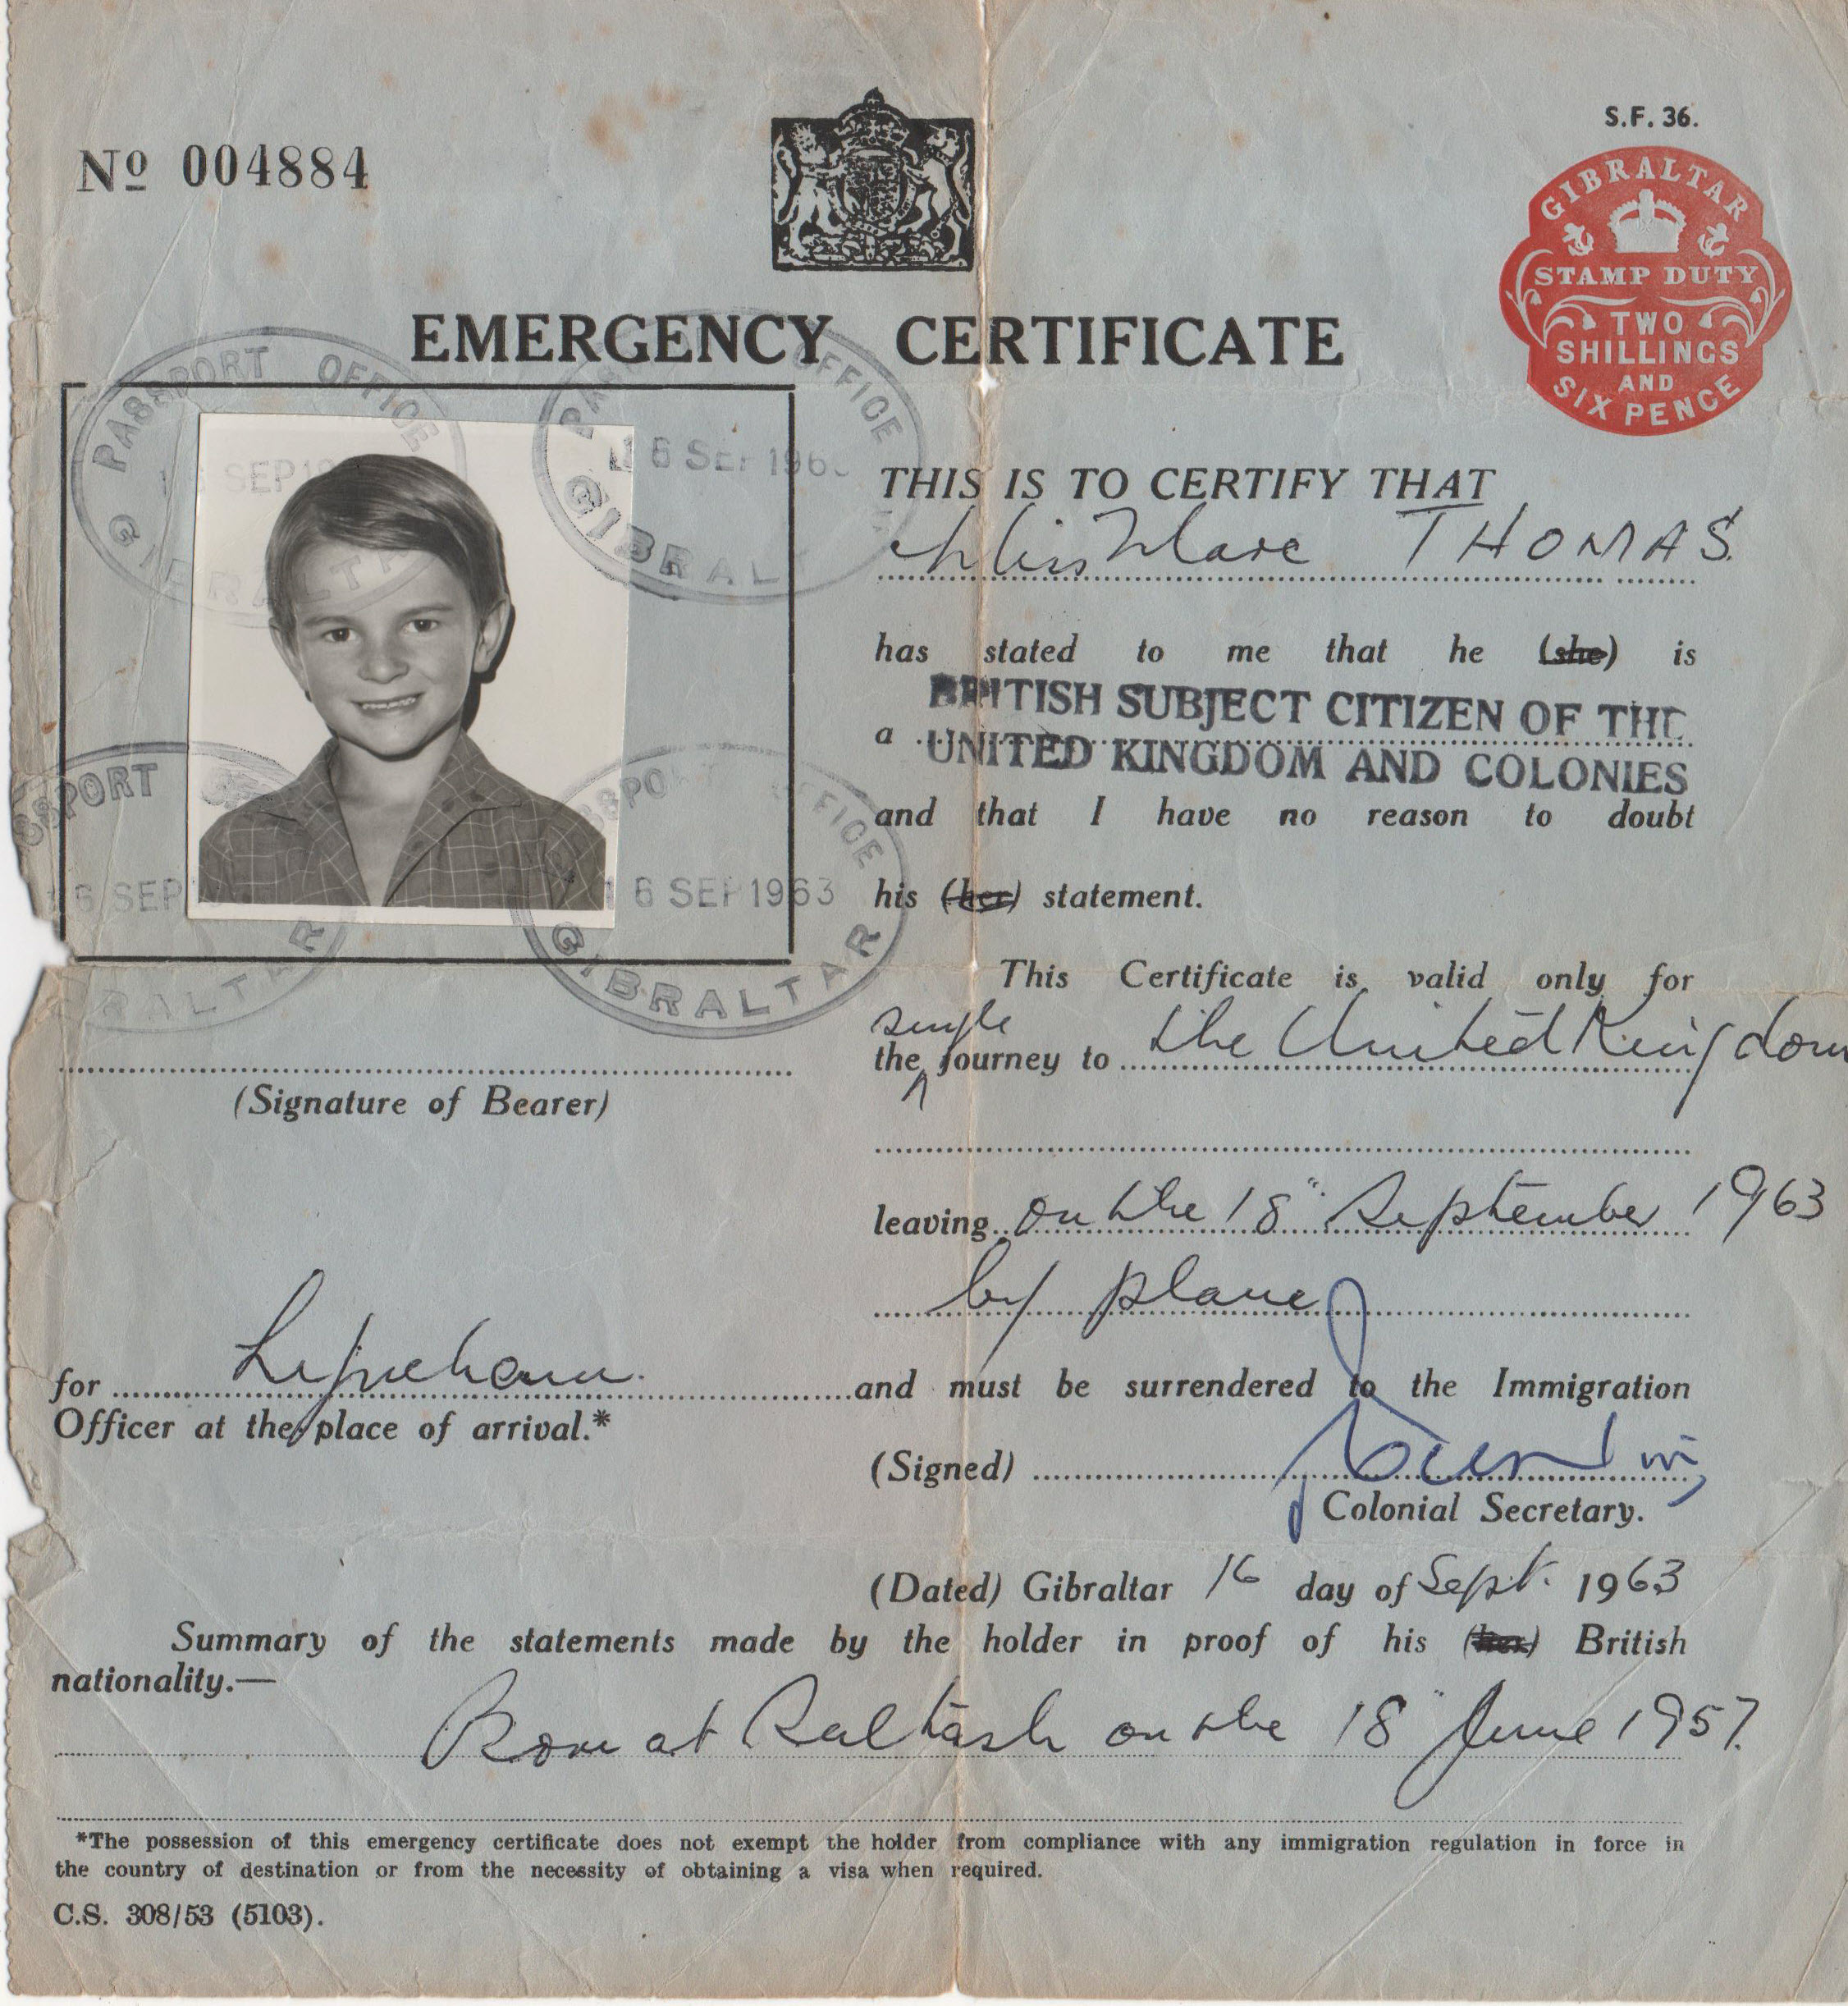 S.F. 36.
Nº 004884
GIBRALTAR
STAMP DUTY
TWO
SHILLINGS
AND
SIX PENCE
EMERGENCY CERTIFICATE
PASSPORT OFFICE
SEP 19
GIBRALTA
PA OFFICE
16 SEP 196
GIBRALT
SPORT
6 SEP
RALTAR
SSPORT OFFICE
16 SEP 1963
GIBRALTAR
THIS IS TO CERTIFY THAT
THOMAS.
has stated to me that he (she) is
a BRITISH SUBJECT CITIZEN OF THE
UNITED KINGDOM AND COLONIES
and that I have no reason to doubt
his (her) statement.
This Certificate is valid only for
single
the journey to the United Kingdom
(Signature of Bearer)
leaving on the 18" September 1963
by plane
for and must be surrendered to the Immigration
Officer at the place of arrival.*
(Signed)
Colonial Secretary.
(Dated) Gibraltar 16 day of Sept. 1963
Summary of the statements made by the holder in proof of his (her) British
nationality.—
Born at Saltash on the 18" June 1957.
*The possession of this emergency certificate does not exempt the holder from compliance with any immigration regulation in force in
the country of destination or from the necessity of obtaining a visa when required.
C.S. 308/53 (5103).